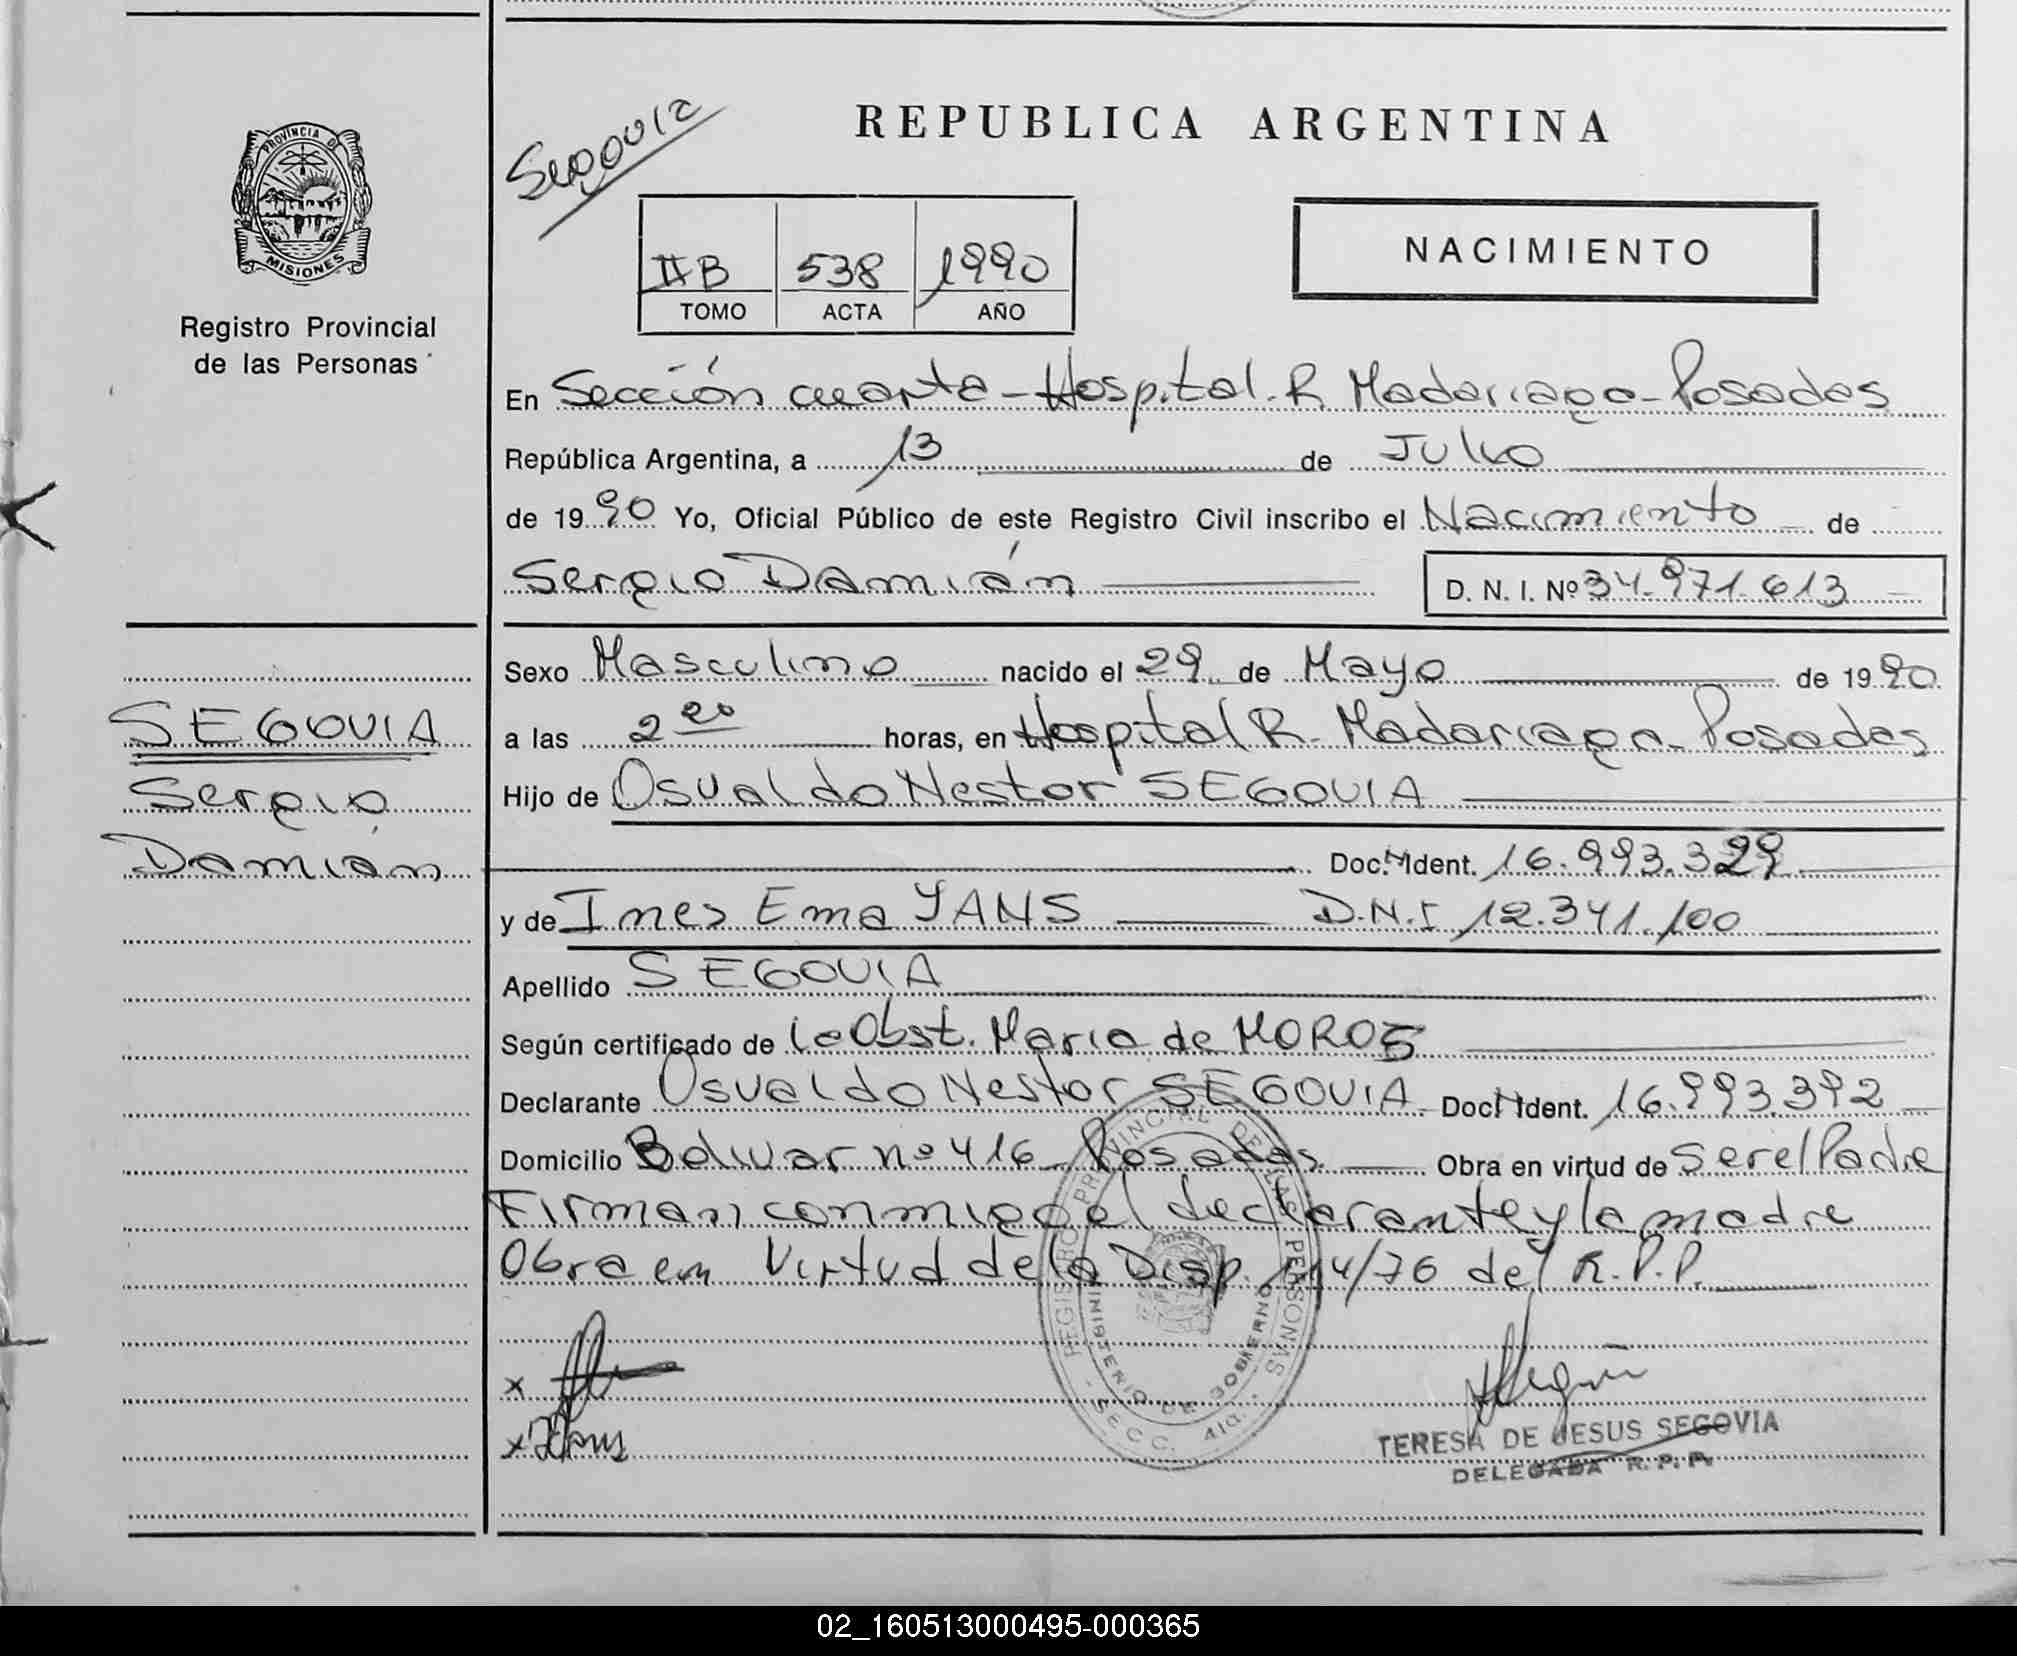 REPUBLICA ARGENTINA
Segovia
PROVINCIA DE
MISIONES
Registro Provincial
de las Personas
IIB 538 1990
TOMO ACTA AÑO
NACIMIENTO
En Sección cuarta - Hospital R. Madariaga - Posadas
República Argentina, a 13 de Julio
de 1990 Yo, Oficial Público de este Registro Civil inscribo el Nacimiento de
Sergio Damián D. N. I. Nº 34.971.613
Sexo Masculino nacido el 29 de Mayo de 1990
a las 2 20 horas, en Hospital R. Madariaga - Posadas
Hijo de Osvaldo Nestor SEGOVIA
Doc. Ident. 16.993.329
y de Ines Ema YANS D.N.I 12.341.100
Apellido SEGOVIA
Según certificado de la Obst. Maria de MOROZ
Declarante Osvaldo Nestor SEGOVIA Doc. Ident. 16.993.392
Domicilio Bolivar nº 416 Posadas Obra en virtud de ser el Padre
Firman conmigo el declarante y la madre
Obra en Virtud de la Disp. 114/76 del R.P.P.
SEGOVIA
Sergio
Damián
REGISTRO PROVINCIAL DE LAS PERSONAS
MINISTERIO DE GOBIERNO
SECC. 4ta.
x
x Yans
TERESA DE JESUS SEGOVIA
DELEGADA R. P. P.
02_160513000495-000365